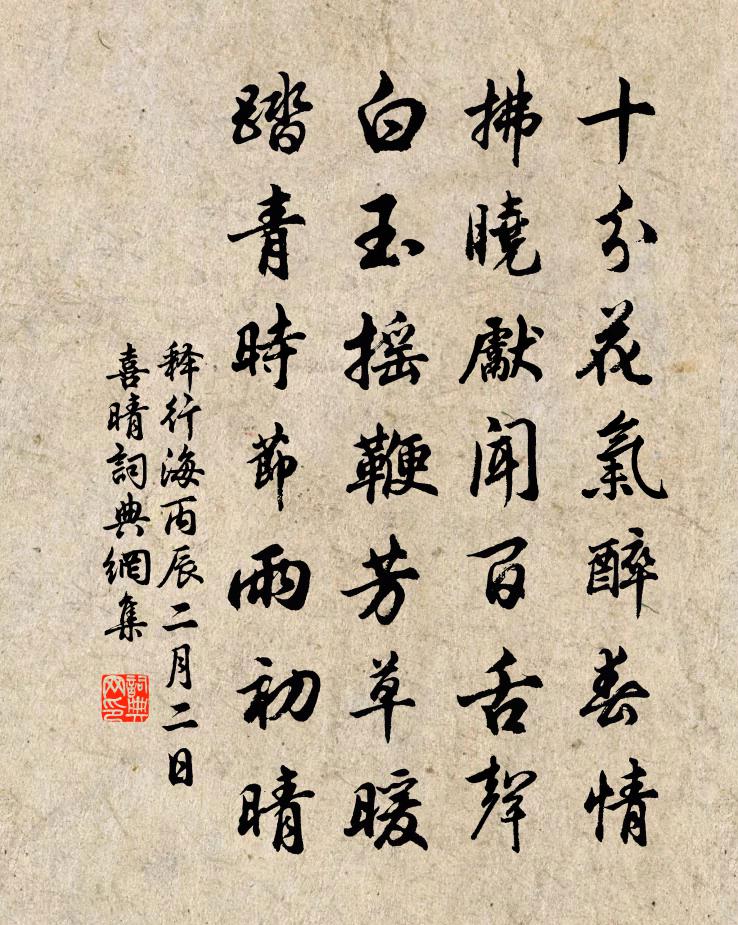 十分花氣醉春情
拂曉獻聞百舌聲
白玉搖鞭芳草暖
踏青時節雨初晴
释行海丙辰二月二日
喜晴詞典網集
詞典
网印